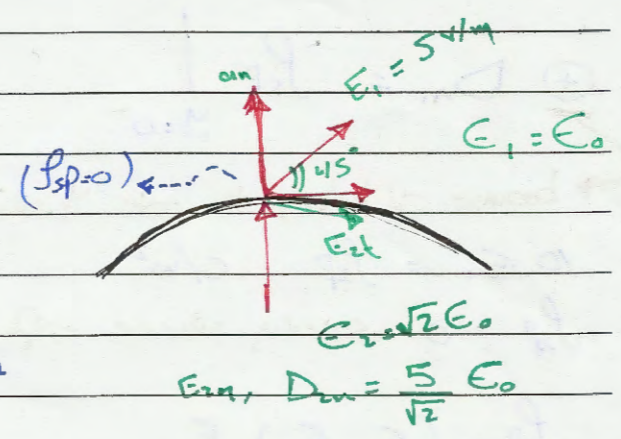 an
E₁ = 5 V/m
ϵ₁ = ϵ₀
(ρsp=0)
45°
E₂t
ϵ₂ = √2 ϵ₀
E₂n, D₂n = 5/√2 ϵ₀